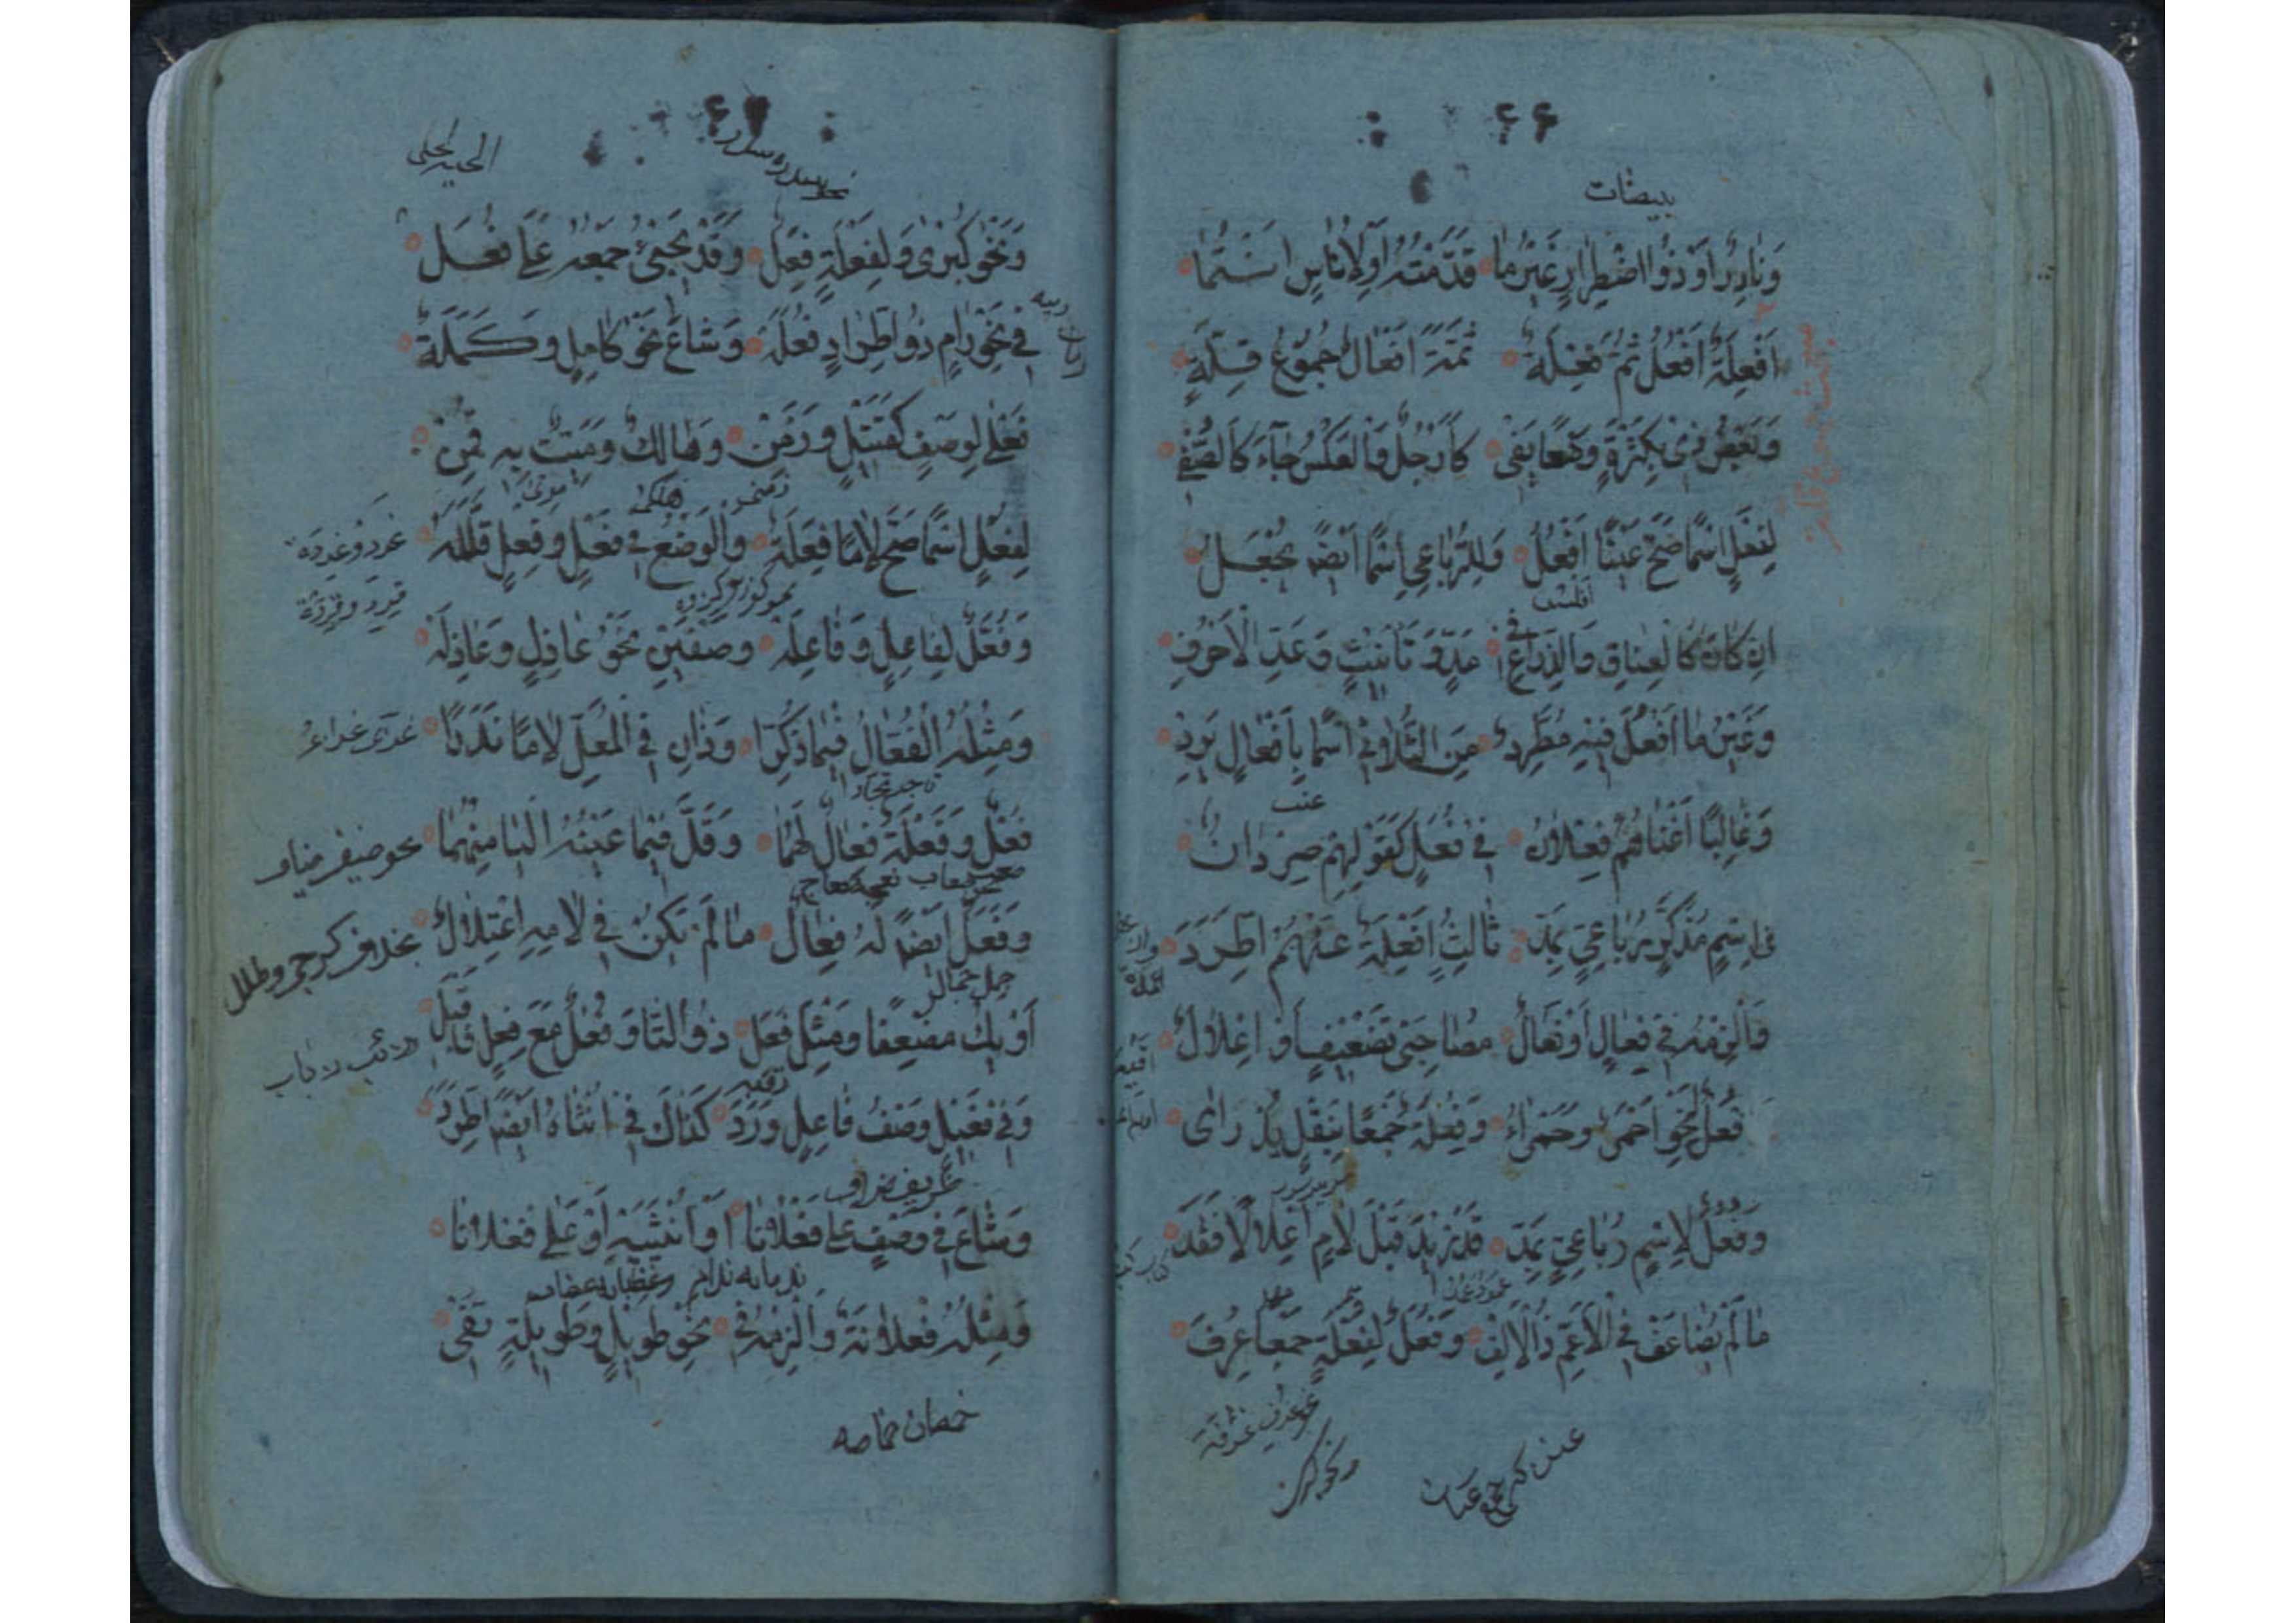 ۶۶
بيضات
وَنَادِرٌ اَوْ ذُو اضْطِرَارٍ غَيْرُ مَا قَدَّمْتُهُ اَوْ لِاُنَاسٍ انْتَمَا
اَفْعِلَةٌ اَفْعُلُ ثُمَّ فِعْلَة ثَمَّةَ اَفْعَالٌ جُمُوعُ قِلَّةٍ
وَبَعْضُ ذِي بِكَثْرَةٍ وَضْعًا يَفِي كَاَرْجُلٍ وَالْعَكْسُ جَاءَ كَالصُّفِي
لِفَعْلٍ اسْمًا صَحَّ عَيْنًا اَفْعُلُ وَلِلرُّبَاعِيِ اسْمًا اَيْضًا يُجْعَلُ
افلس
اِنْ كَانَ كَالْعِنَاقِ وَالذِّرَاعِ فِي مَدٍّ وَتَأْنِيثٍ وَعَدِّ الْاَحْرُفِ
وَغَيْرُ مَا اَفْعُلُ فِيهِ مُطَّرِدٌ مِنَ الثُّلَاثِي اسْمًا بِاَفْعَالٍ يَرِدْ
عنب
وَغَالِبًا اَغْنَاهُمُ فِعْلَانُ فِي فُعَلٍ كَقَوْلِهِمْ صِرْدَانُ
فِي اسْمٍ مُذَكَّرٍ رُبَاعِيٍّ بِمَدّ ثَالِثٍ اَفْعِلَةُ عَنْهُمْ اطَّرَدَ
وَالْزَمْهُ فِي فِعَالٍ اَوْ فَعَالٍ مُصَاحِبَيْ تَضْعِيفٍ اَوْ اِعْلَالٍ
فُعْلٌ لِنَحْوِ اَحْمَرٍ وَحَمْرَاءُ وَفِعْلَةٌ جَمْعًا بِنَقْلٍ يُدْرَاى
وَفُعُلٌ لِاسْمٍ رُبَاعِيٍّ بِمَدّ قَدْ زِيدَ قَبْلَ لَامٍ اعْلَالًا فَقَدَ
مَا لَمْ يُضَاعَفْ فِي الْاَعَمِّ ذُو الْاَلِفْ وَفُعَلٌ لِفُعْلَةٍ جَمْعًا عُرِفَ
نحو غرف غرفة
ونحو كبرى
۶۷
وَنَحْوِ كُبْرَى وَلِفِعْلَةٍ فِعَلٌ وَقَدْ يَجِيْئُ جَمْعُهُ عَلَى فُعَلْ
فِي نَحْوِ رَامٍ ذُو اطِّرَادٍ فُعَلَهْ وَشَاعَ نَحْوُ كَامِلٍ وَكَمَلَةْ
فَعْلَى لِوَصْفٍ كَقَتِيلٍ وَزَمِنْ وَهَالِكٌ وَمَيِّتٌ بِهِ قَمِنْ
زمنى هلكى موتى
لِفُعْلٍ اسْمًا صَحَّ لَامًا فِعَلَةٌ وَالْوَضْعُ فِي فَعْلٍ وَفِعْلٍ قَلَّلَهْ
غرد وغردة
قرد وقردة
وَفُعَّلٌ لِفَاعِلٍ وَفَاعِلَهْ وَصْفَيْنِ نَحْوُ عَاذِلٍ وَعَاذِلَهْ
وَمِثْلُهُ الْفُعَّالُ فِيمَا ذُكِّرَا وَذَانِ فِي الْمُعَلِّ لَامًا نَدَرَا
فَعْلٌ وَفَعْلَةٌ فِعَالٌ لَهُمَا وَقَلَّ فِيمَا عَيْنُهُ الْيَا مِنْهُمَا
نحو ضيف ضياف
وَفَعَلٌ اَيْضًا لَهُ فِعَالٌ مَا لَمْ يَكُنْ فِي لَامِهِ اعْتِلَالٌ
جمل جمال
اَوْ يَكُ مُضْعَفًا وَمِثْلُ فَعَلٍ ذُو التَّا وَفُعْلٌ مَعَ فِعْلٍ فَاقْبَلِ
وَفِي فَعِيلٍ وَصْفُ فَاعِلٍ وَرَدَ كَذَاكَ فِي اُنْثَاهُ اَيْضًا اطَّرَدَ
وَشَاعَ فِي وَصْفٍ عَلَى فَعْلَانَا اَوْ اُنْثَيَيْهِ اَوْ عَلَى فُعْلَانَا
وَمِثْلُهُ فُعْلَانَةٌ وَالْزَمْهُ فِي نَحْوِ طَوِيلٍ وَطَوِيلَةٍ تَفِي
خمصان خماصه